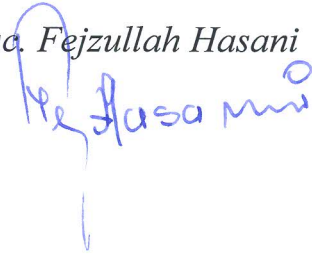 c. Fejzullah Hasani
Fejz Hasani